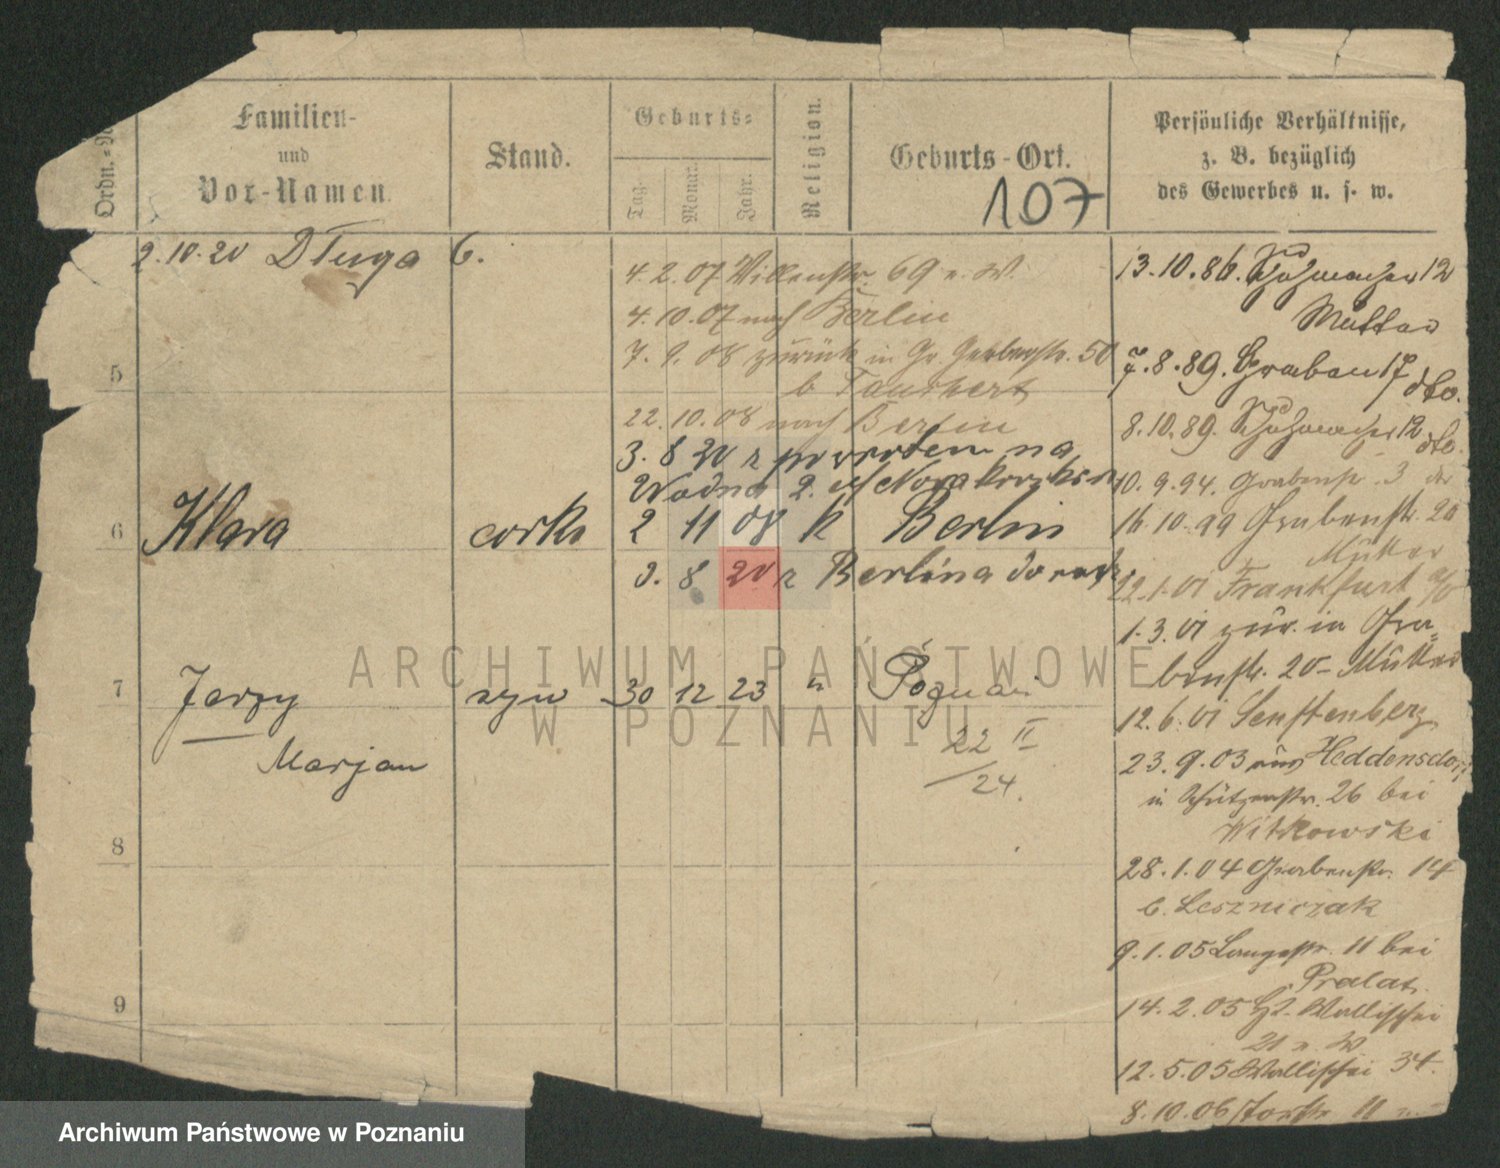 Ordn.-
Familien-
und
Vor-Namen.
Stand.
Geburts-
Tag.
Monat.
Jahr.
Religion.
Geburts-Ort.
107
Persönliche Verhältnisse,
z. B. bezüglich
des Gewerbes u. s. w.
2.10.20 Długa 6.
4.2.07 69
4.10.07 nach Berlin
7.9.08 zurück in Gr. Gerberstr. 50
b Tauchert
22.10.08 nach Berlin
3. 8 20 z powrotem na
Wodna 2.
5
6 Klara corka 2 11 08 k Berlin
3. 8 20 z Berlina
7 Jerzy syn 30 12 23 " Poznań
Marjan
22 II
24.
8
9
13.10.86. Schuhmacher 12
Mutter
7.8.89. Graben 17 dto.
8.10.89. Schuhmacher 12 dto.
10.9.94. Grabenstr. 3
16.10.99 Grabenstr. 20
Mutter
22.1.01 Frankfurt a/O
1.3.01 zur. in Gra-
benstr. 20 - Mutter
12.6.01 Senftenberg
23.9.03 aus Heddensdorf
in Schützenstr. 26 bei
Witkowski
28.1.04 Grabenstr. 14
b. Leszniczak
9.1.05 Langestr. 11 bei
Pralat.
14.2.05 Wallischei
21 n. W
12.5.05 Wallischei 34.
8.10.06 11
ARCHIWUM PAŃSTWOWE
W POZNANIU
Archiwum Państwowe w Poznaniu